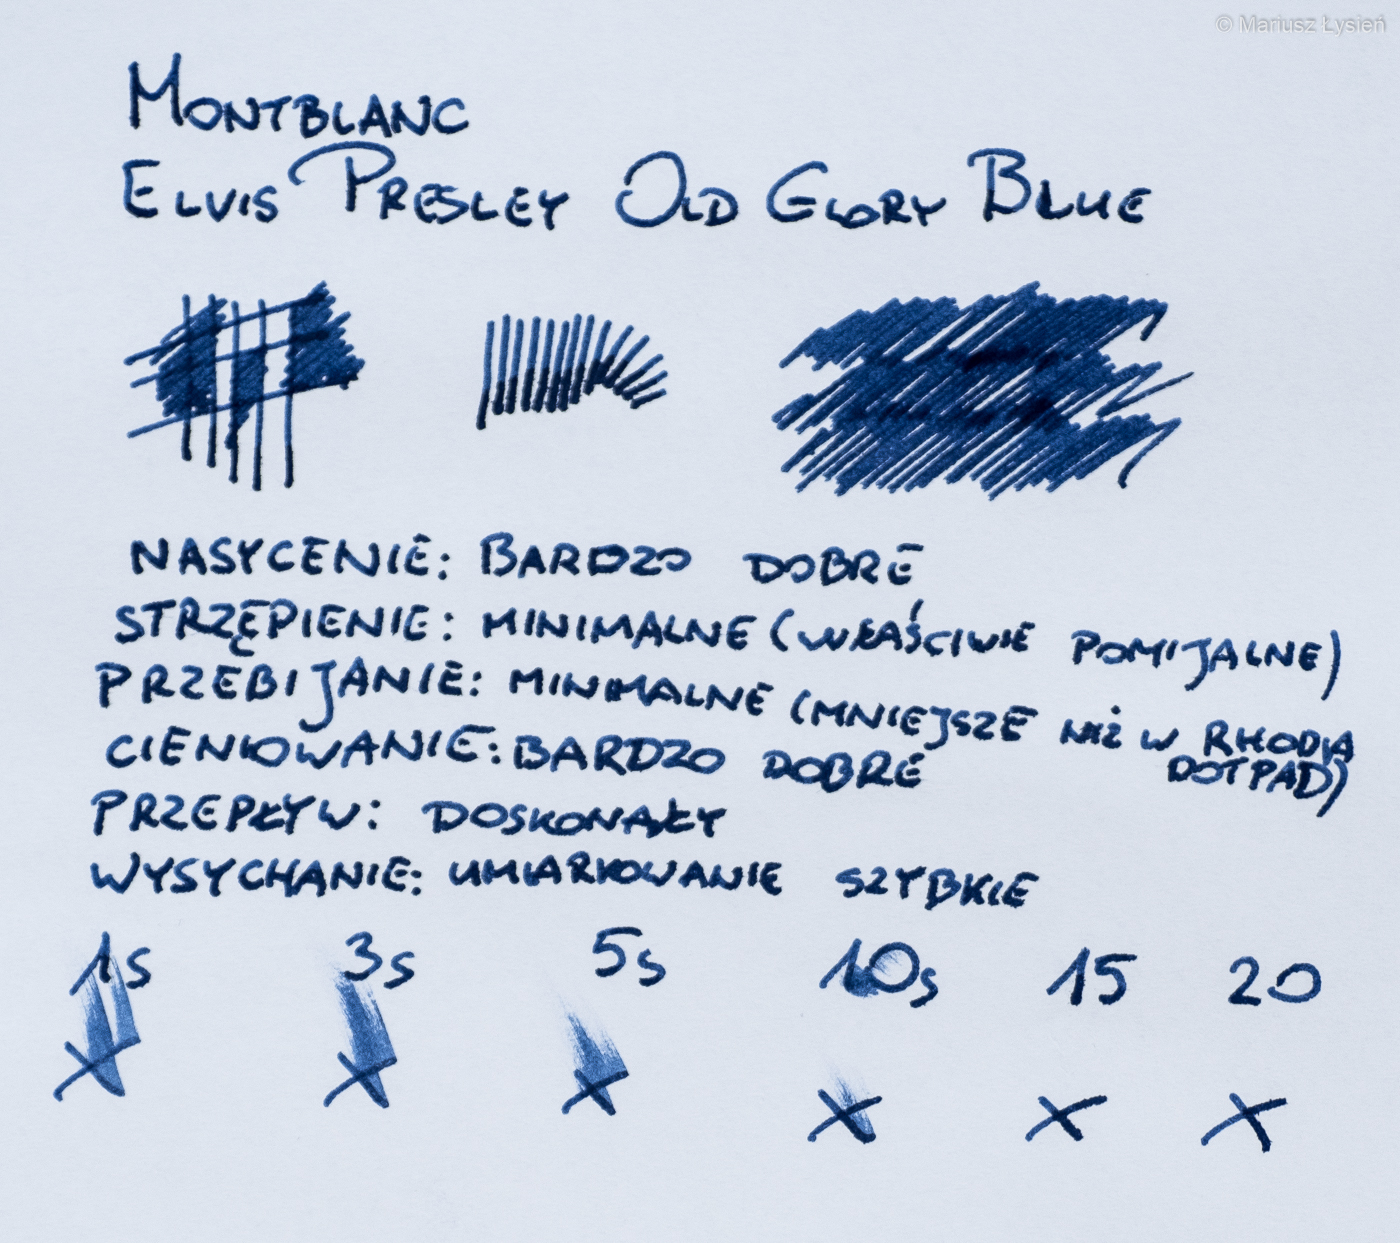 © Mariusz Łysień
MONTBLANC
ELVIS PRESLEY OLD GLORY BLUE
NASYCENIE: BARDZO DOBRE
STRZĘPIENIE: MINIMALNE (WŁAŚCIWIE POMIJALNE)
PRZEBIJANIE: MINIMALNE (MNIEJSZE NIŻ W RHODIA
DOTPAD)
CIENIOWANIE: BARDZO DOBRE
PRZEPŁYW: DOSKONAŁY
WYSYCHANIE: UMIARKOWANIE SZYBKIE
1s 3s 5s 10s 15 20